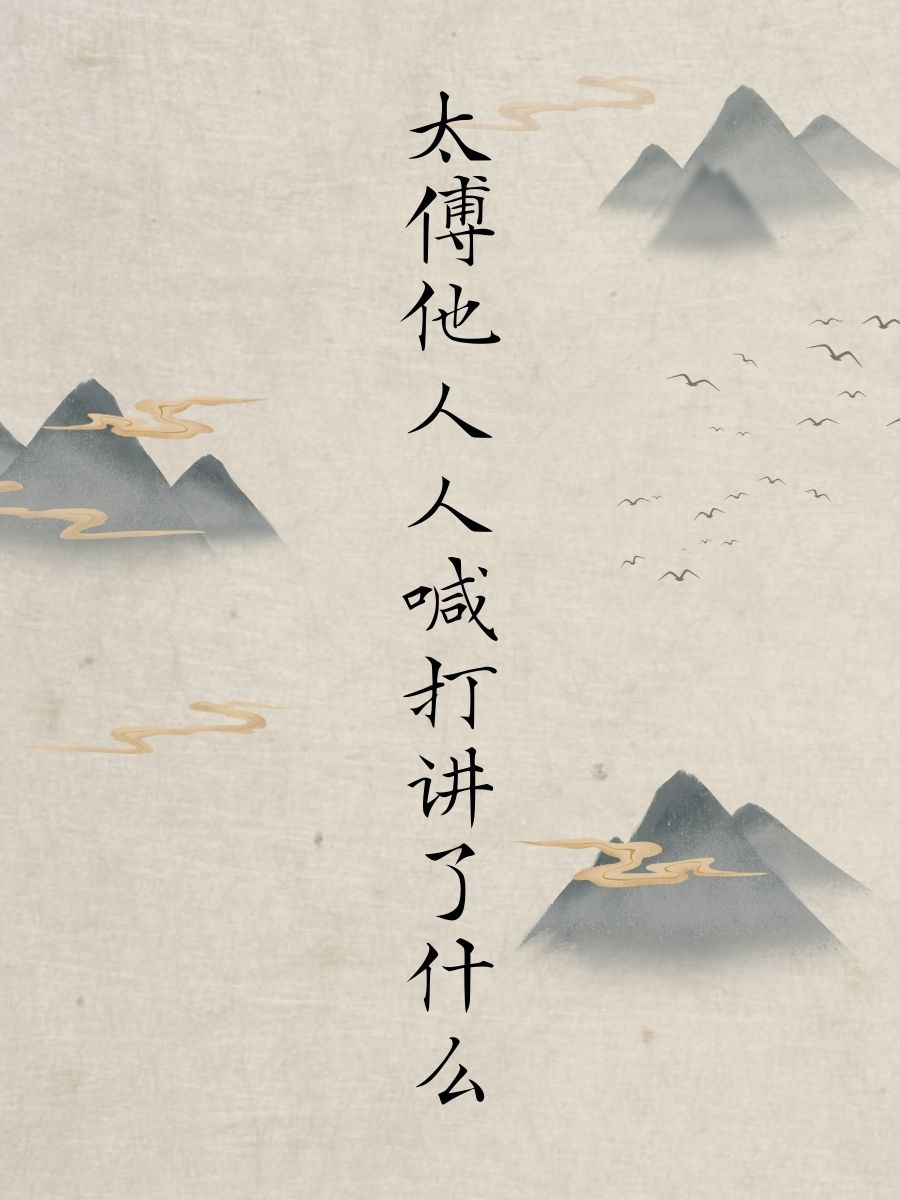 太傅他人人喊打讲了什么